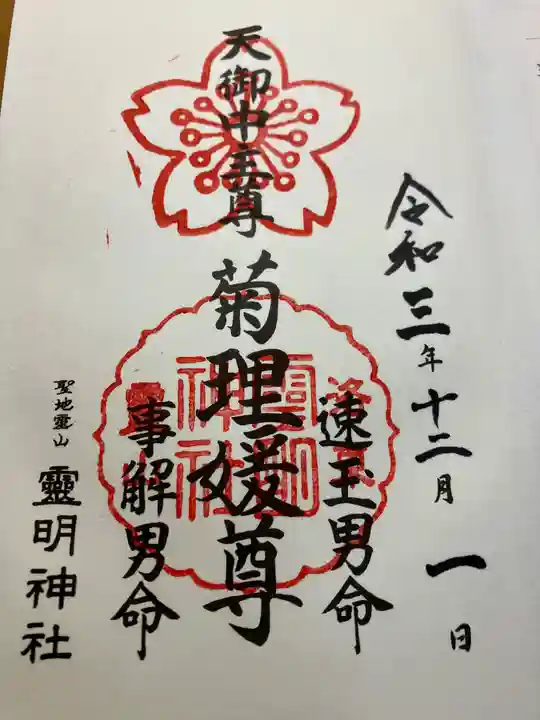 令和三年十二月一日
天御中主尊
速玉男命
菊理媛尊
事解男命
聖地霊山
靈明神社